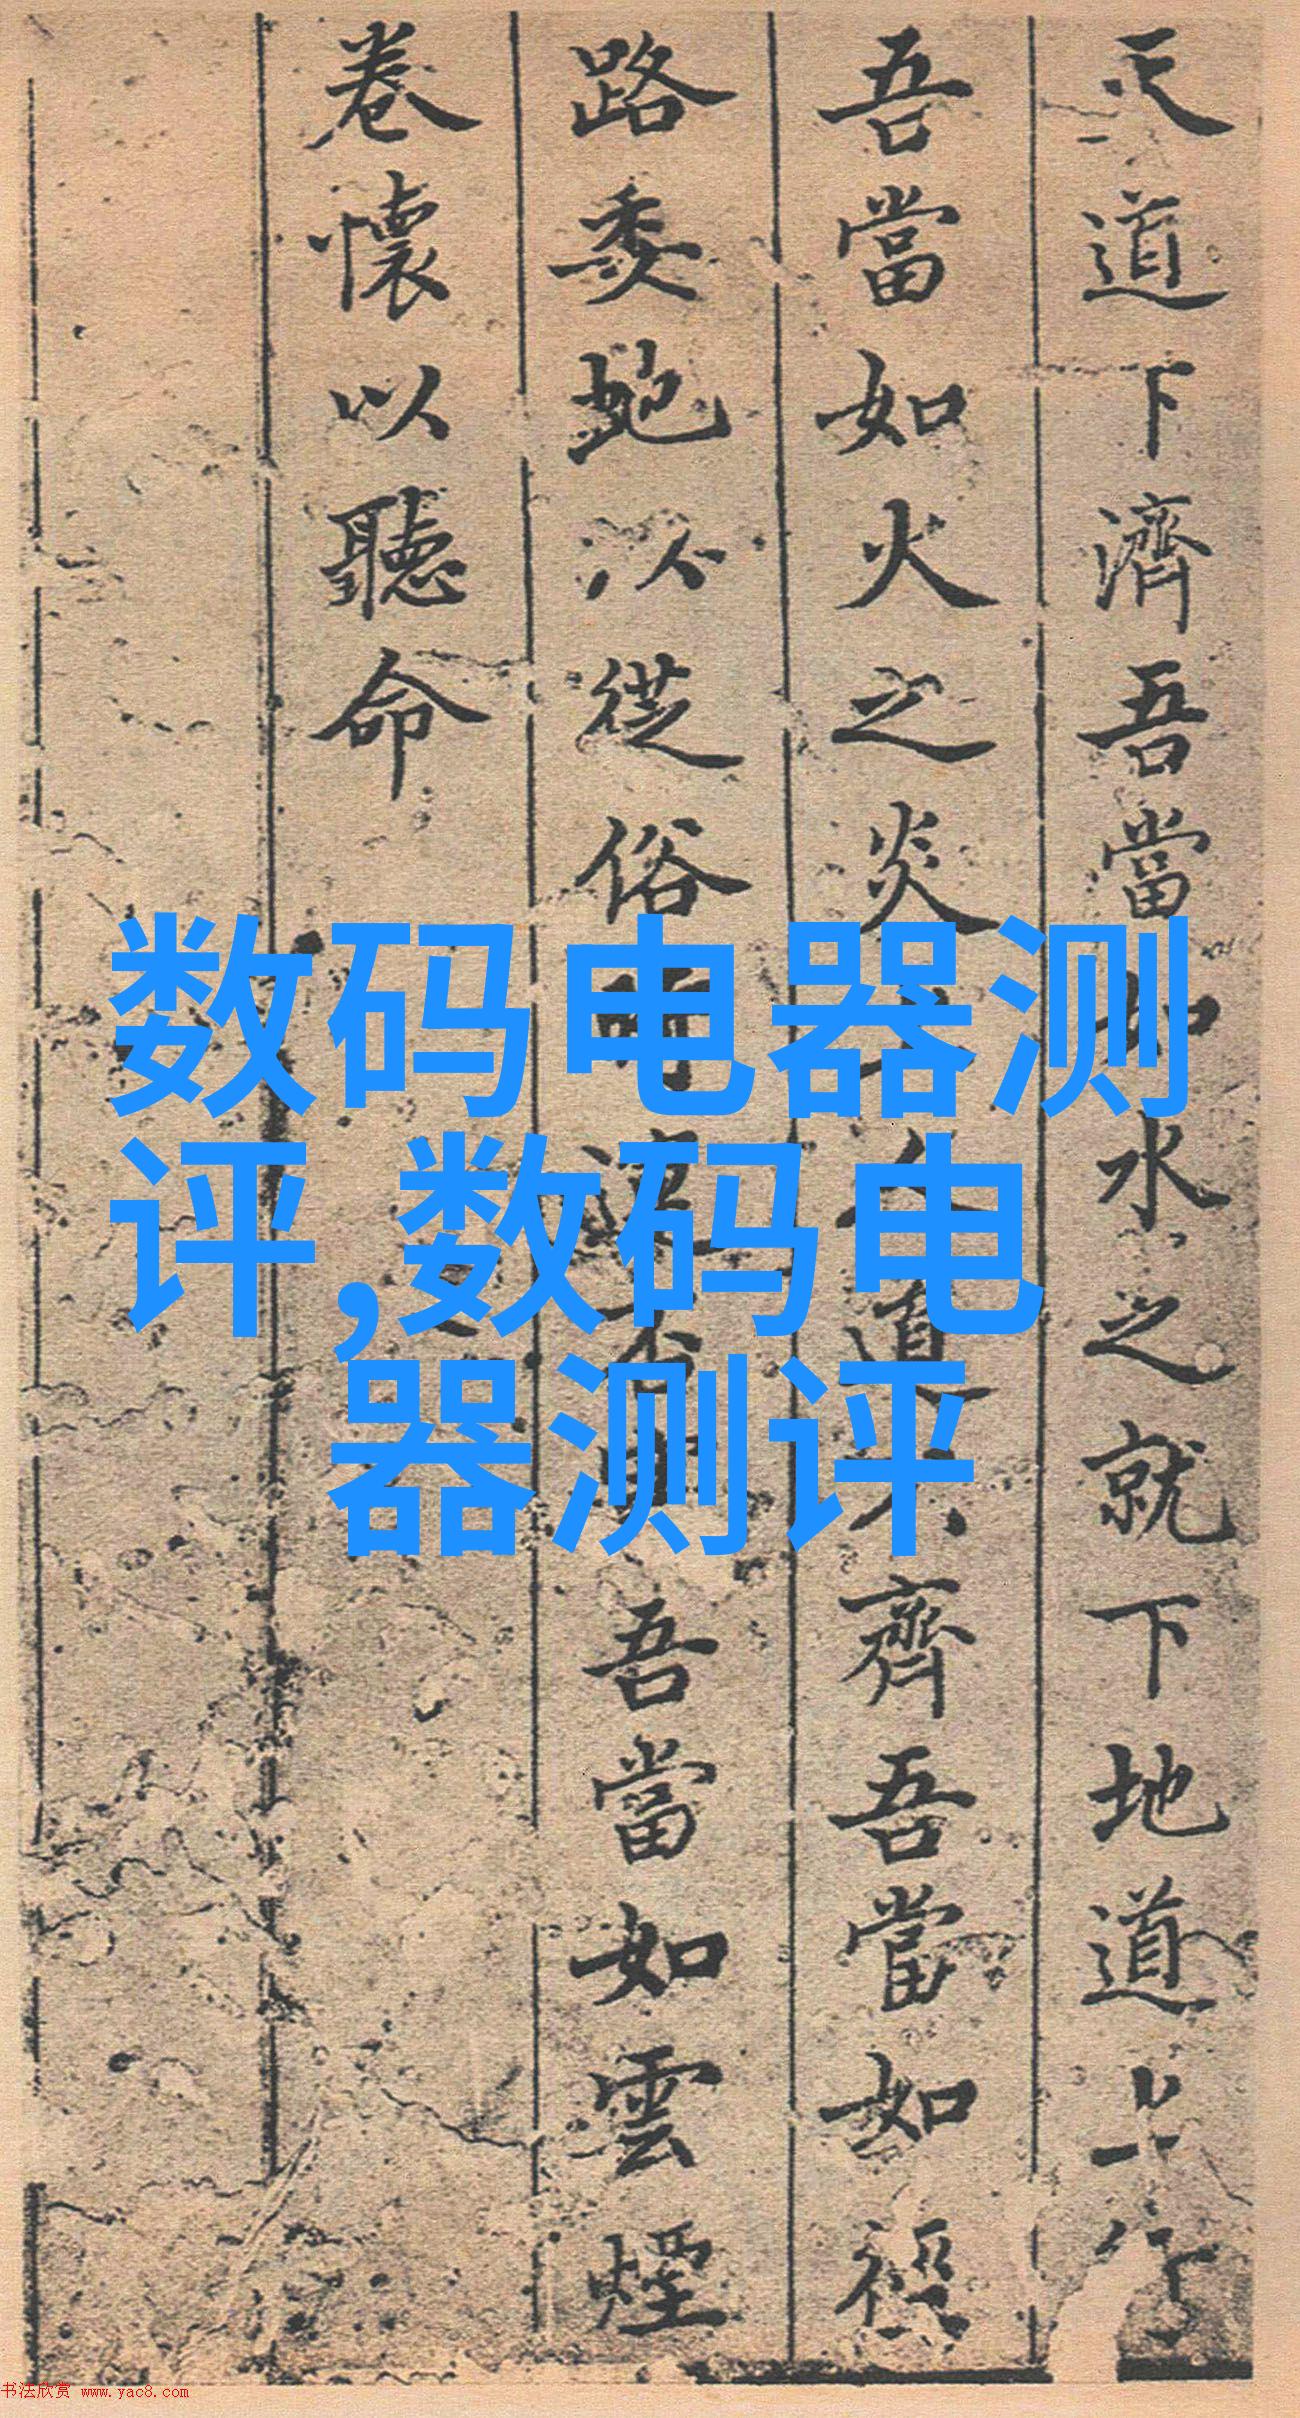 天道下濟吾當如水之就下地道上行
吾當如火之炎人道不齊吾當如經
路委蛇以從俗吾當如雲煙
卷懷以聽命
数码电器测
评,数码电
器测评
书法欣赏 www.yac8.com